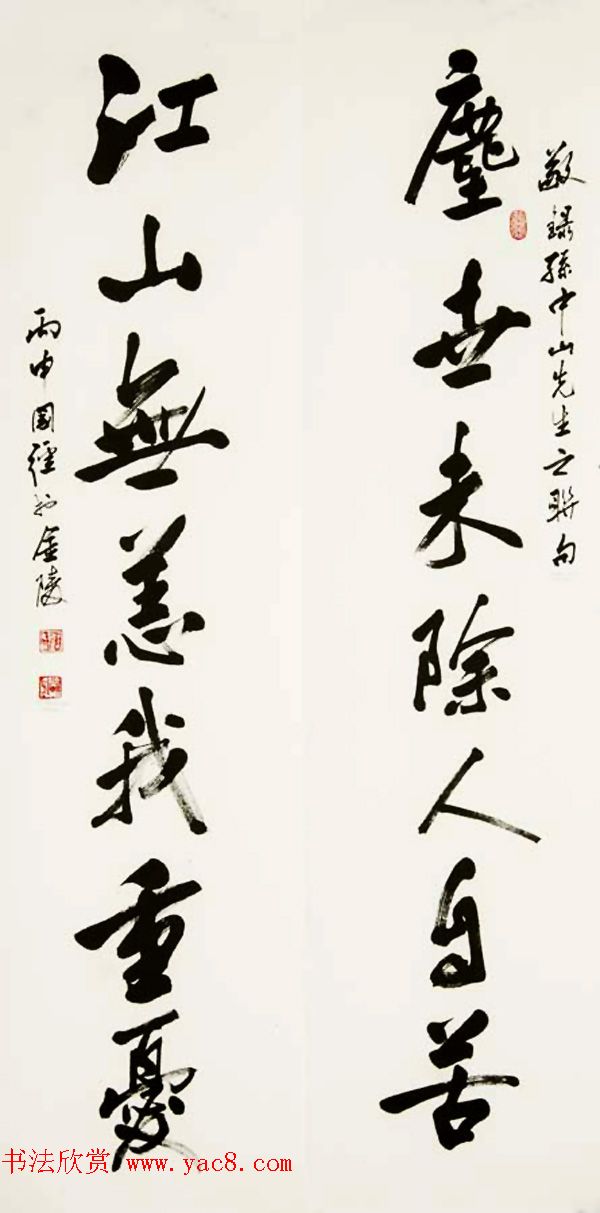 敬錄孫中山先生之聯句
塵世未除人自苦
江山無恙我重憂
丙申國經於金陵
书法欣赏 www.yac8.com